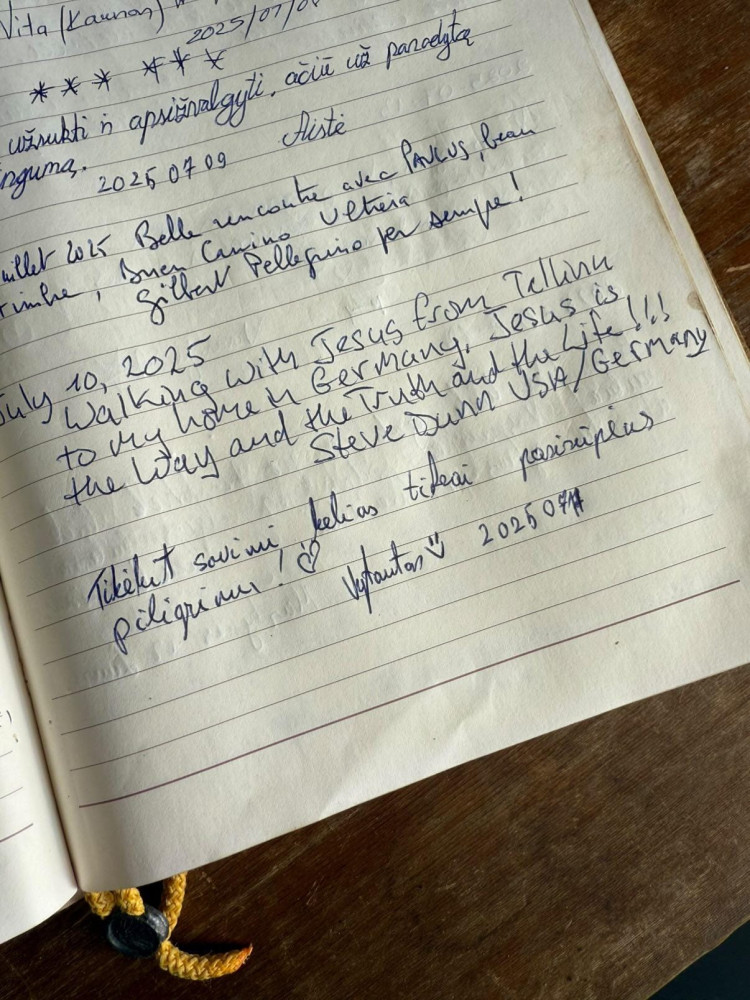 Vita (Kaunas)
2025/07/0
*** ***
užsukti ir apsižvalgyti, ačiū už parodytą
ingumą. 2025 07 09 Aistė
uillet 2025 Belle rencontre avec PAULUS, beau
timbre, Buen Camino Ultreia
Gilbert Pellegrino per sempre!
July 10, 2025
Walking with Jesus from Tallinn
to my home in Germany. Jesus is
the Way and the Truth and the Life!!!
Steve Dunn USA/Germany
Tikėkit savimi, kelias tikrai pasirūpins
piligrimu! Vytautas 2025 07 11